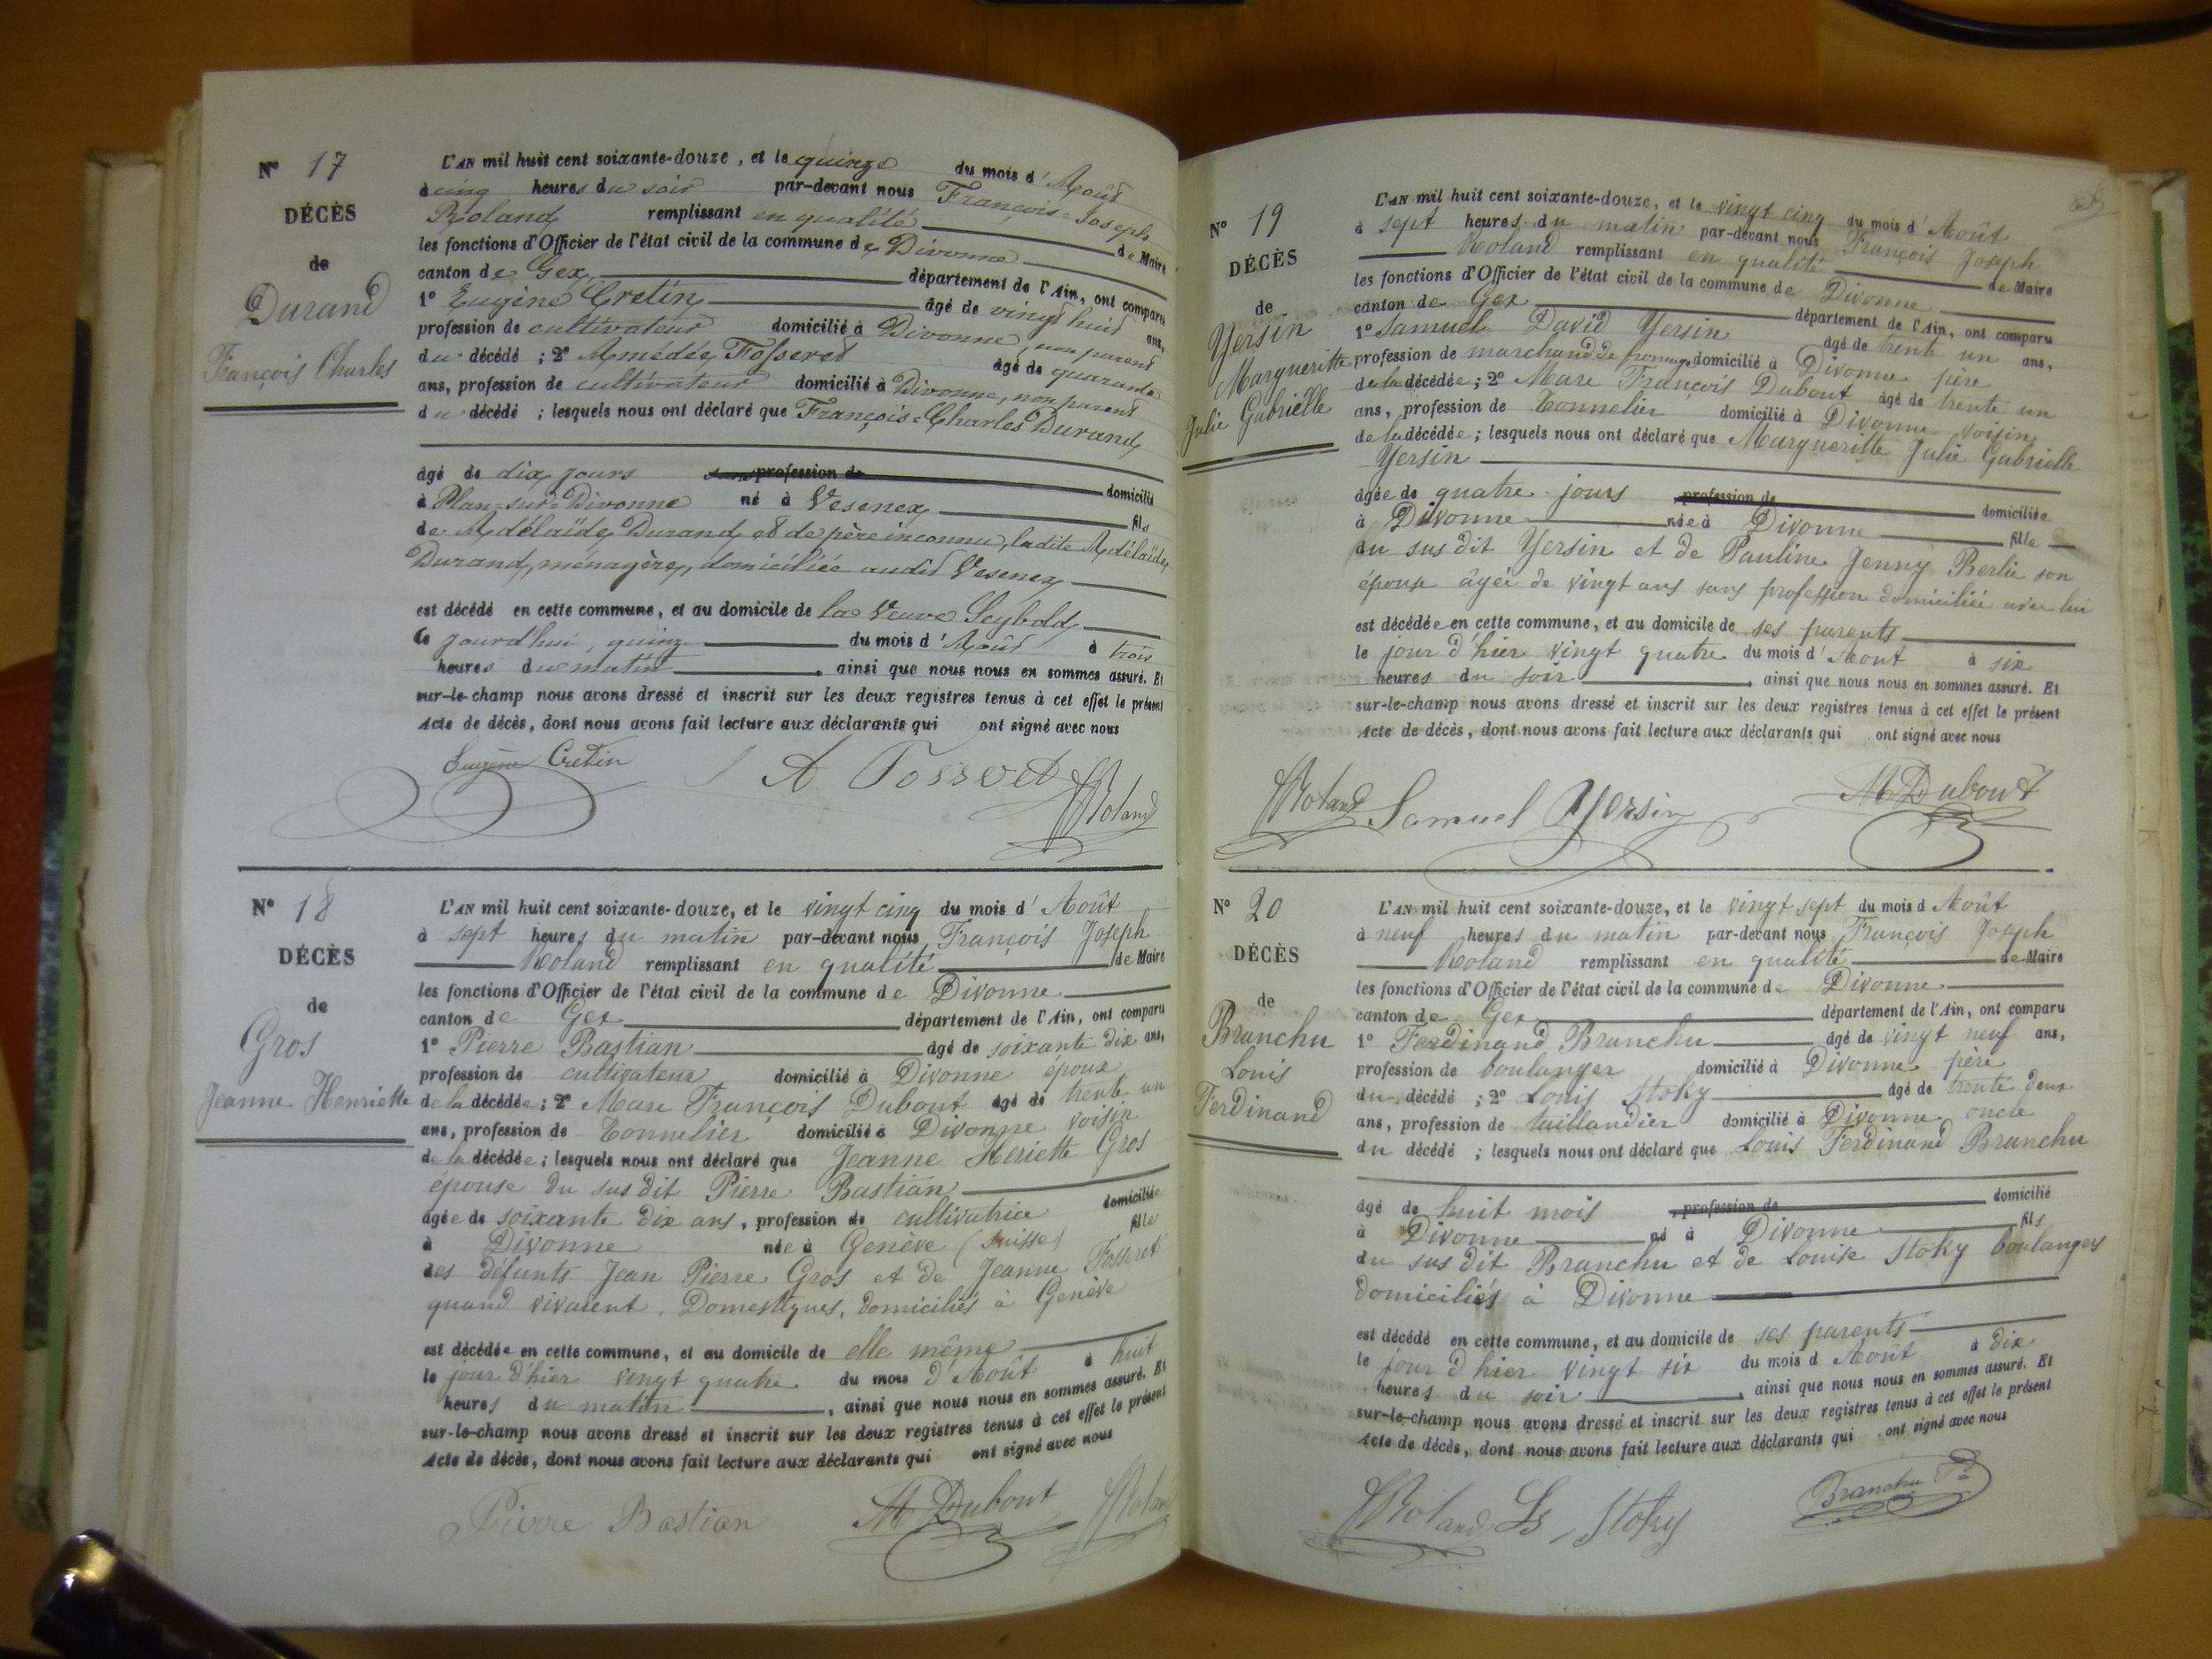 N° 17
DÉCÈS
de
Durand
François Charles
L'AN mil huit cent soixante-douze, et le quinze du mois d'Août
à cinq heures du soir par-devant nous François-Joseph
Roland remplissant en qualité de Maire
les fonctions d'Officier de l'état civil de la commune de Divonne
canton de Gex, département de l'Ain, ont comparu
1° Eugène Cretin âgé de vingt huit ans,
profession de cultivateur domicilié à Divonne, non parent
du décédé ; 2° Amédée Fosseret âgé de quarante
ans, profession de cultivateur domicilié à Divonne, non parent
du décédé ; lesquels nous ont déclaré que François-Charles Durand,
âgé de dix jours profession de domicilié
à Plan-sur-Divonne né à Vesenex, fils
de Adélaïde Durand, et de père inconnu, ladite Adélaïde
Durand, ménagère, domiciliée audit Vesenex
est décédé en cette commune, et au domicile de la Veuve Seybold,
ce jourd'hui, quinze du mois d'Août à trois
heures du matin, ainsi que nous nous en sommes assuré. Et
sur-le-champ nous avons dressé et inscrit sur les deux registres tenus à cet effet le présent
Acte de décès, dont nous avons fait lecture aux déclarants qui ont signé avec nous
Eugène Cretin A Fosseret Roland
N° 18
DÉCÈS
de
Gros
Jeanne Henriette
L'AN mil huit cent soixante-douze, et le vingt cinq du mois d'Août
à sept heures du matin par-devant nous François Joseph
Roland remplissant en qualité de Maire
les fonctions d'Officier de l'état civil de la commune de Divonne
canton de Gex département de l'Ain, ont comparu
1° Pierre Bastian âgé de soixante dix ans,
profession de cultivateur domicilié à Divonne époux
de la décédée ; 2° Marc François Dubout âgé de trente un
ans, profession de Tonnelier domicilié à Divonne voisin
de la décédée ; lesquels nous ont déclaré que Jeanne Heriette Gros
épouse du sus dit Pierre Bastian
âgée de soixante dix ans, profession de cultivatrice domiciliée
à Divonne née à Genève (Suisse) fille
des défunts Jean Pierre Gros et de Jeanne Fosseret
quand vivaient, Domestiques, domiciliés à Genève
est décédée en cette commune, et au domicile de elle même
le jour d'hier vingt quatre du mois d'Août à huit
heures du matin, ainsi que nous nous en sommes assuré. Et
sur-le-champ nous avons dressé et inscrit sur les deux registres tenus à cet effet le présent
Acte de décès, dont nous avons fait lecture aux déclarants qui ont signé avec nous
Pierre Bastian M Dubout Roland
N° 19
DÉCÈS
de
Yersin
Margueritte
Julie Gabrielle
L'AN mil huit cent soixante-douze, et le vingt cinq du mois d'Août
à sept heures du matin par-devant nous François Joseph
Roland remplissant en qualité de Maire
les fonctions d'Officier de l'état civil de la commune de Divonne
canton de Gex département de l'Ain, ont comparu
1° Samuel David Yersin âgé de trente un ans,
profession de marchand de fromage domicilié à Divonne père
de la décédée ; 2° Marc François Dubout âgé de trente un
ans, profession de Tonnelier domicilié à Divonne voisin
de la décédée ; lesquels nous ont déclaré que Margueritte Julie Gabrielle
Yersin
âgée de quatre jours profession de domiciliée
à Divonne née à Divonne fille
du sus dit Yersin et de Pauline Jenny Berlie son
épouse âgée de vingt ans sans profession domiciliée avec lui
est décédée en cette commune, et au domicile de ses parents
le jour d'hier vingt quatre du mois d'Août à six
heures du soir, ainsi que nous nous en sommes assuré. Et
sur-le-champ nous avons dressé et inscrit sur les deux registres tenus à cet effet le présent
Acte de décès, dont nous avons fait lecture aux déclarants qui ont signé avec nous
Roland Samuel Yersin M Dubout
N° 20
DÉCÈS
de
Branchu
Louis
Ferdinand
L'AN mil huit cent soixante-douze, et le vingt sept du mois d Août
à neuf heures du matin par-devant nous François Joseph
Roland remplissant en qualité de Maire
les fonctions d'Officier de l'état civil de la commune de Divonne
canton de Gex département de l'Ain, ont comparu
1° Ferdinand Branchu âgé de vingt neuf ans,
profession de boulanger domicilié à Divonne père
du décédé ; 2° Louis Stoky âgé de trente deux
ans, profession de taillandier domicilié à Divonne oncle
du décédé ; lesquels nous ont déclaré que Louis Ferdinand Branchu
âgé de huit mois profession de domicilié
à Divonne né à Divonne fils
du sus dit Branchu et de Louise Stoky boulangers
domiciliés à Divonne
est décédé en cette commune, et au domicile de ses parents
le jour d'hier vingt six du mois d Août à dix
heures du soir, ainsi que nous nous en sommes assuré. Et
sur-le-champ nous avons dressé et inscrit sur les deux registres tenus à cet effet le présent
Acte de décès, dont nous avons fait lecture aux déclarants qui ont signé avec nous
Roland Ls Stoky Branchu Fd